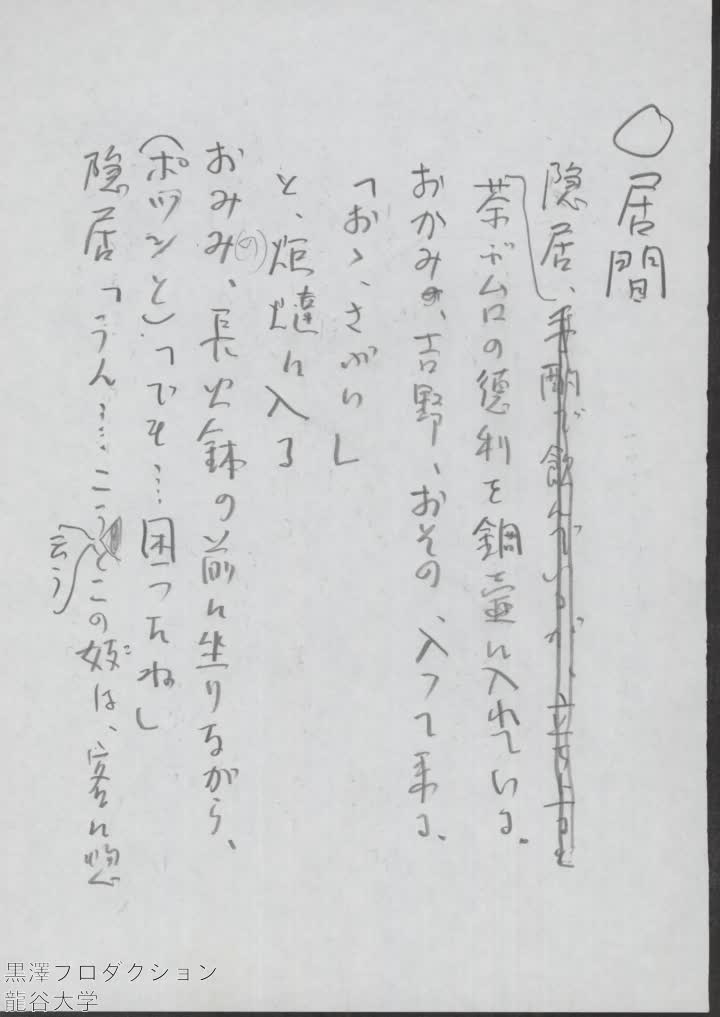 ○居間
隠居、手酌で飲んでいるが、立ち上ると
茶ブ台の徳利を銅壷に入れている。
おかみの、吉野、おその、入って来る、
「おゝ、さぶい」
と、炬燵に入る
おみみ(の)、長火鉢の前に坐りながら、
(ポツンと)「でも…困ったね」
隠居「うん…こうとこの妓は、客に惚
云う
黒澤プロダクション
龍谷大学